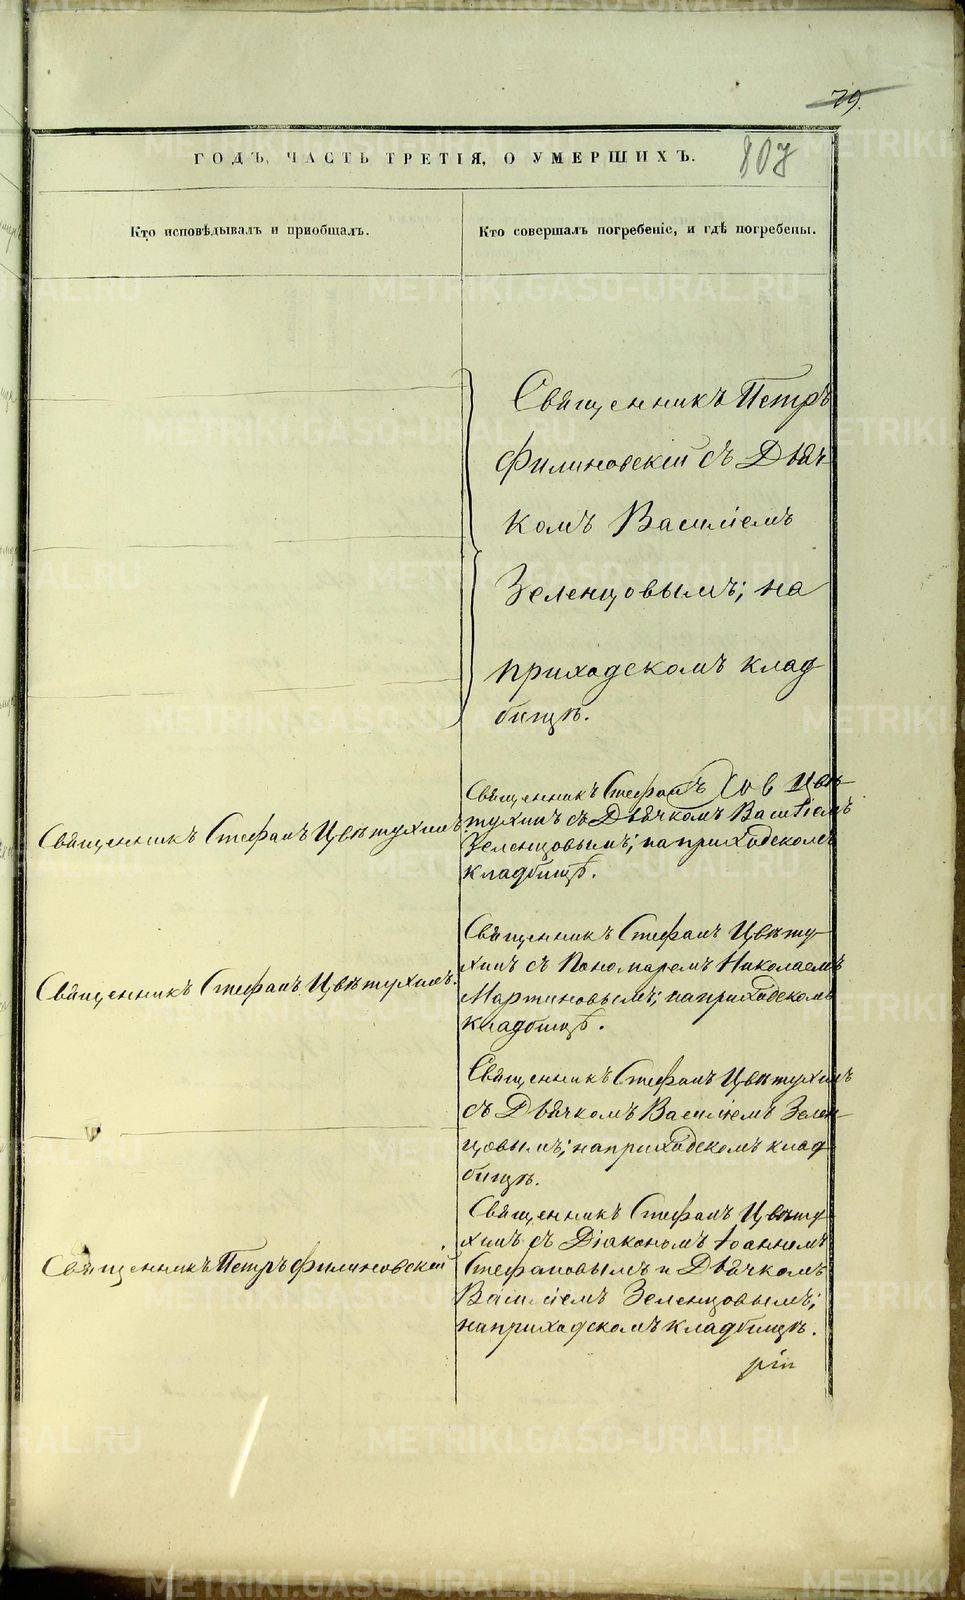 79.
ГОДЪ, ЧАСТЬ ТРЕТІЯ, О УМЕРШИХЪ.
807
Кто исповѣдывалъ и пріобщалъ.
Кто совершалъ погребеніе, и гдѣ погребены.
Священникъ Петръ
Филиновскій съ Дьяч
комъ Василіемъ
Зеленцовымъ; на
приходскомъ клад
бищѣ.
Священникъ Стефанъ Цвѣтухинъ
Священникъ Стефанъ Цвѣ
тухинъ съ Дьячкомъ Василіемъ
Зеленцовымъ; на приходскомъ
кладбищѣ.
Священникъ Стефанъ Цвѣтухинъ.
Священникъ Стефанъ Цвѣту
хинъ съ Пономаремъ Николаемъ
Мартиновымъ; на приходскомъ
кладбищѣ.
Священникъ Стефанъ Цвѣтухинъ
съ Дьячкомъ Василіемъ Зелен
цовымъ; на приходскомъ клад
бищѣ.
Священникъ Петръ Филиновскій
Священникъ Стефанъ Цвѣту
хинъ съ Діакономъ Іоанномъ
Стефановымъ и Дьячкомъ
Василіемъ Зеленцовымъ;
на приходскомъ кладбищѣ.
METRIKI.GASO-URAL.RU